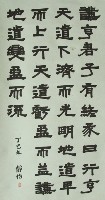 謙亨君子有終彖曰謙亨
天道下濟而光明地道卑
而上行天道虧盈而益謙
地道變盈而流
丁巳冬